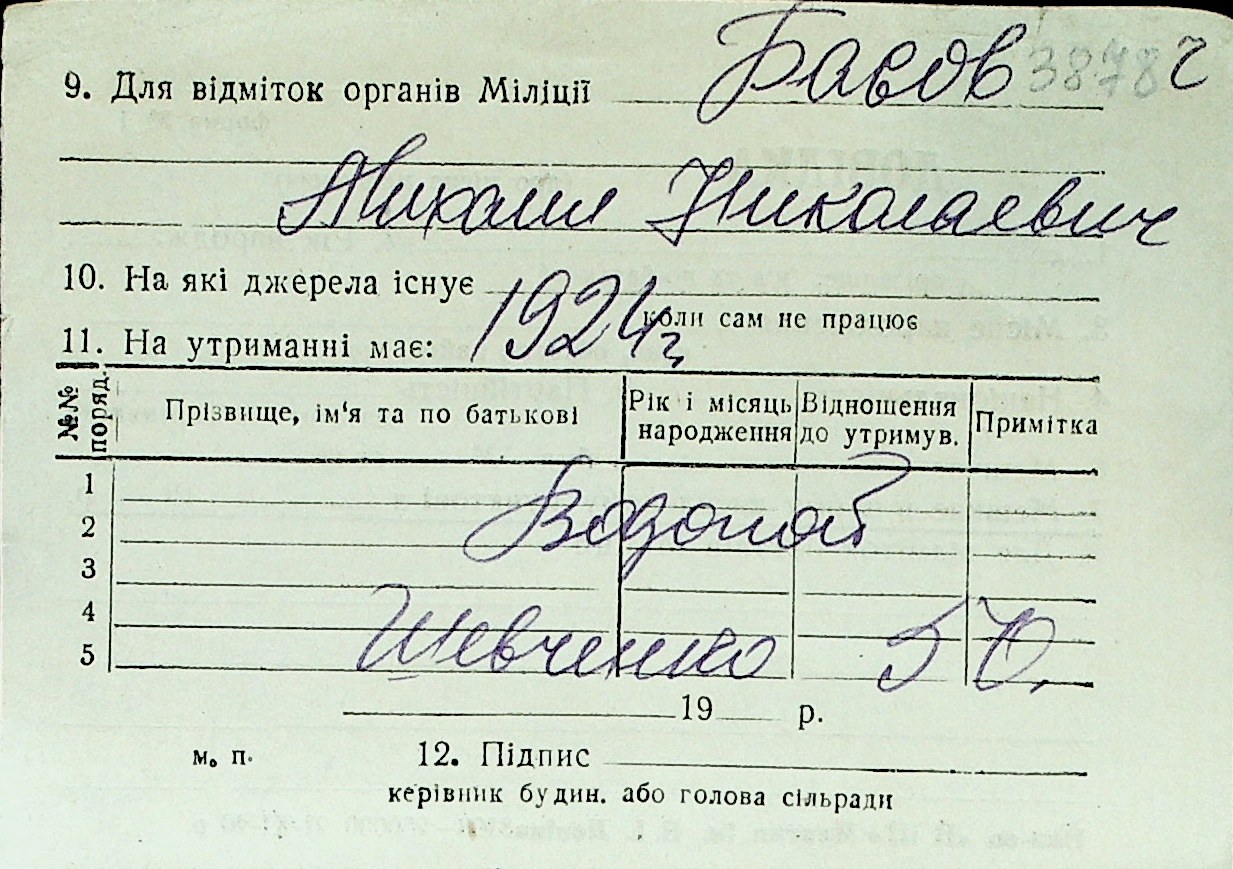 9. Для відміток органів Міліції Басов 3878 г
Михаил Николаевич
10. На які джерела існує
коли сам не працює
11. На утриманні має: 1924 г,
№№ поряд. Прізвище, ім'я та по батькові Рік і місяць народження Відношення до утримув. Примітка
1
2 Водопой
3
4
5 Шевченко 50,
19 р.
м. п. 12. Підпис
керівник будин. або голова сільради